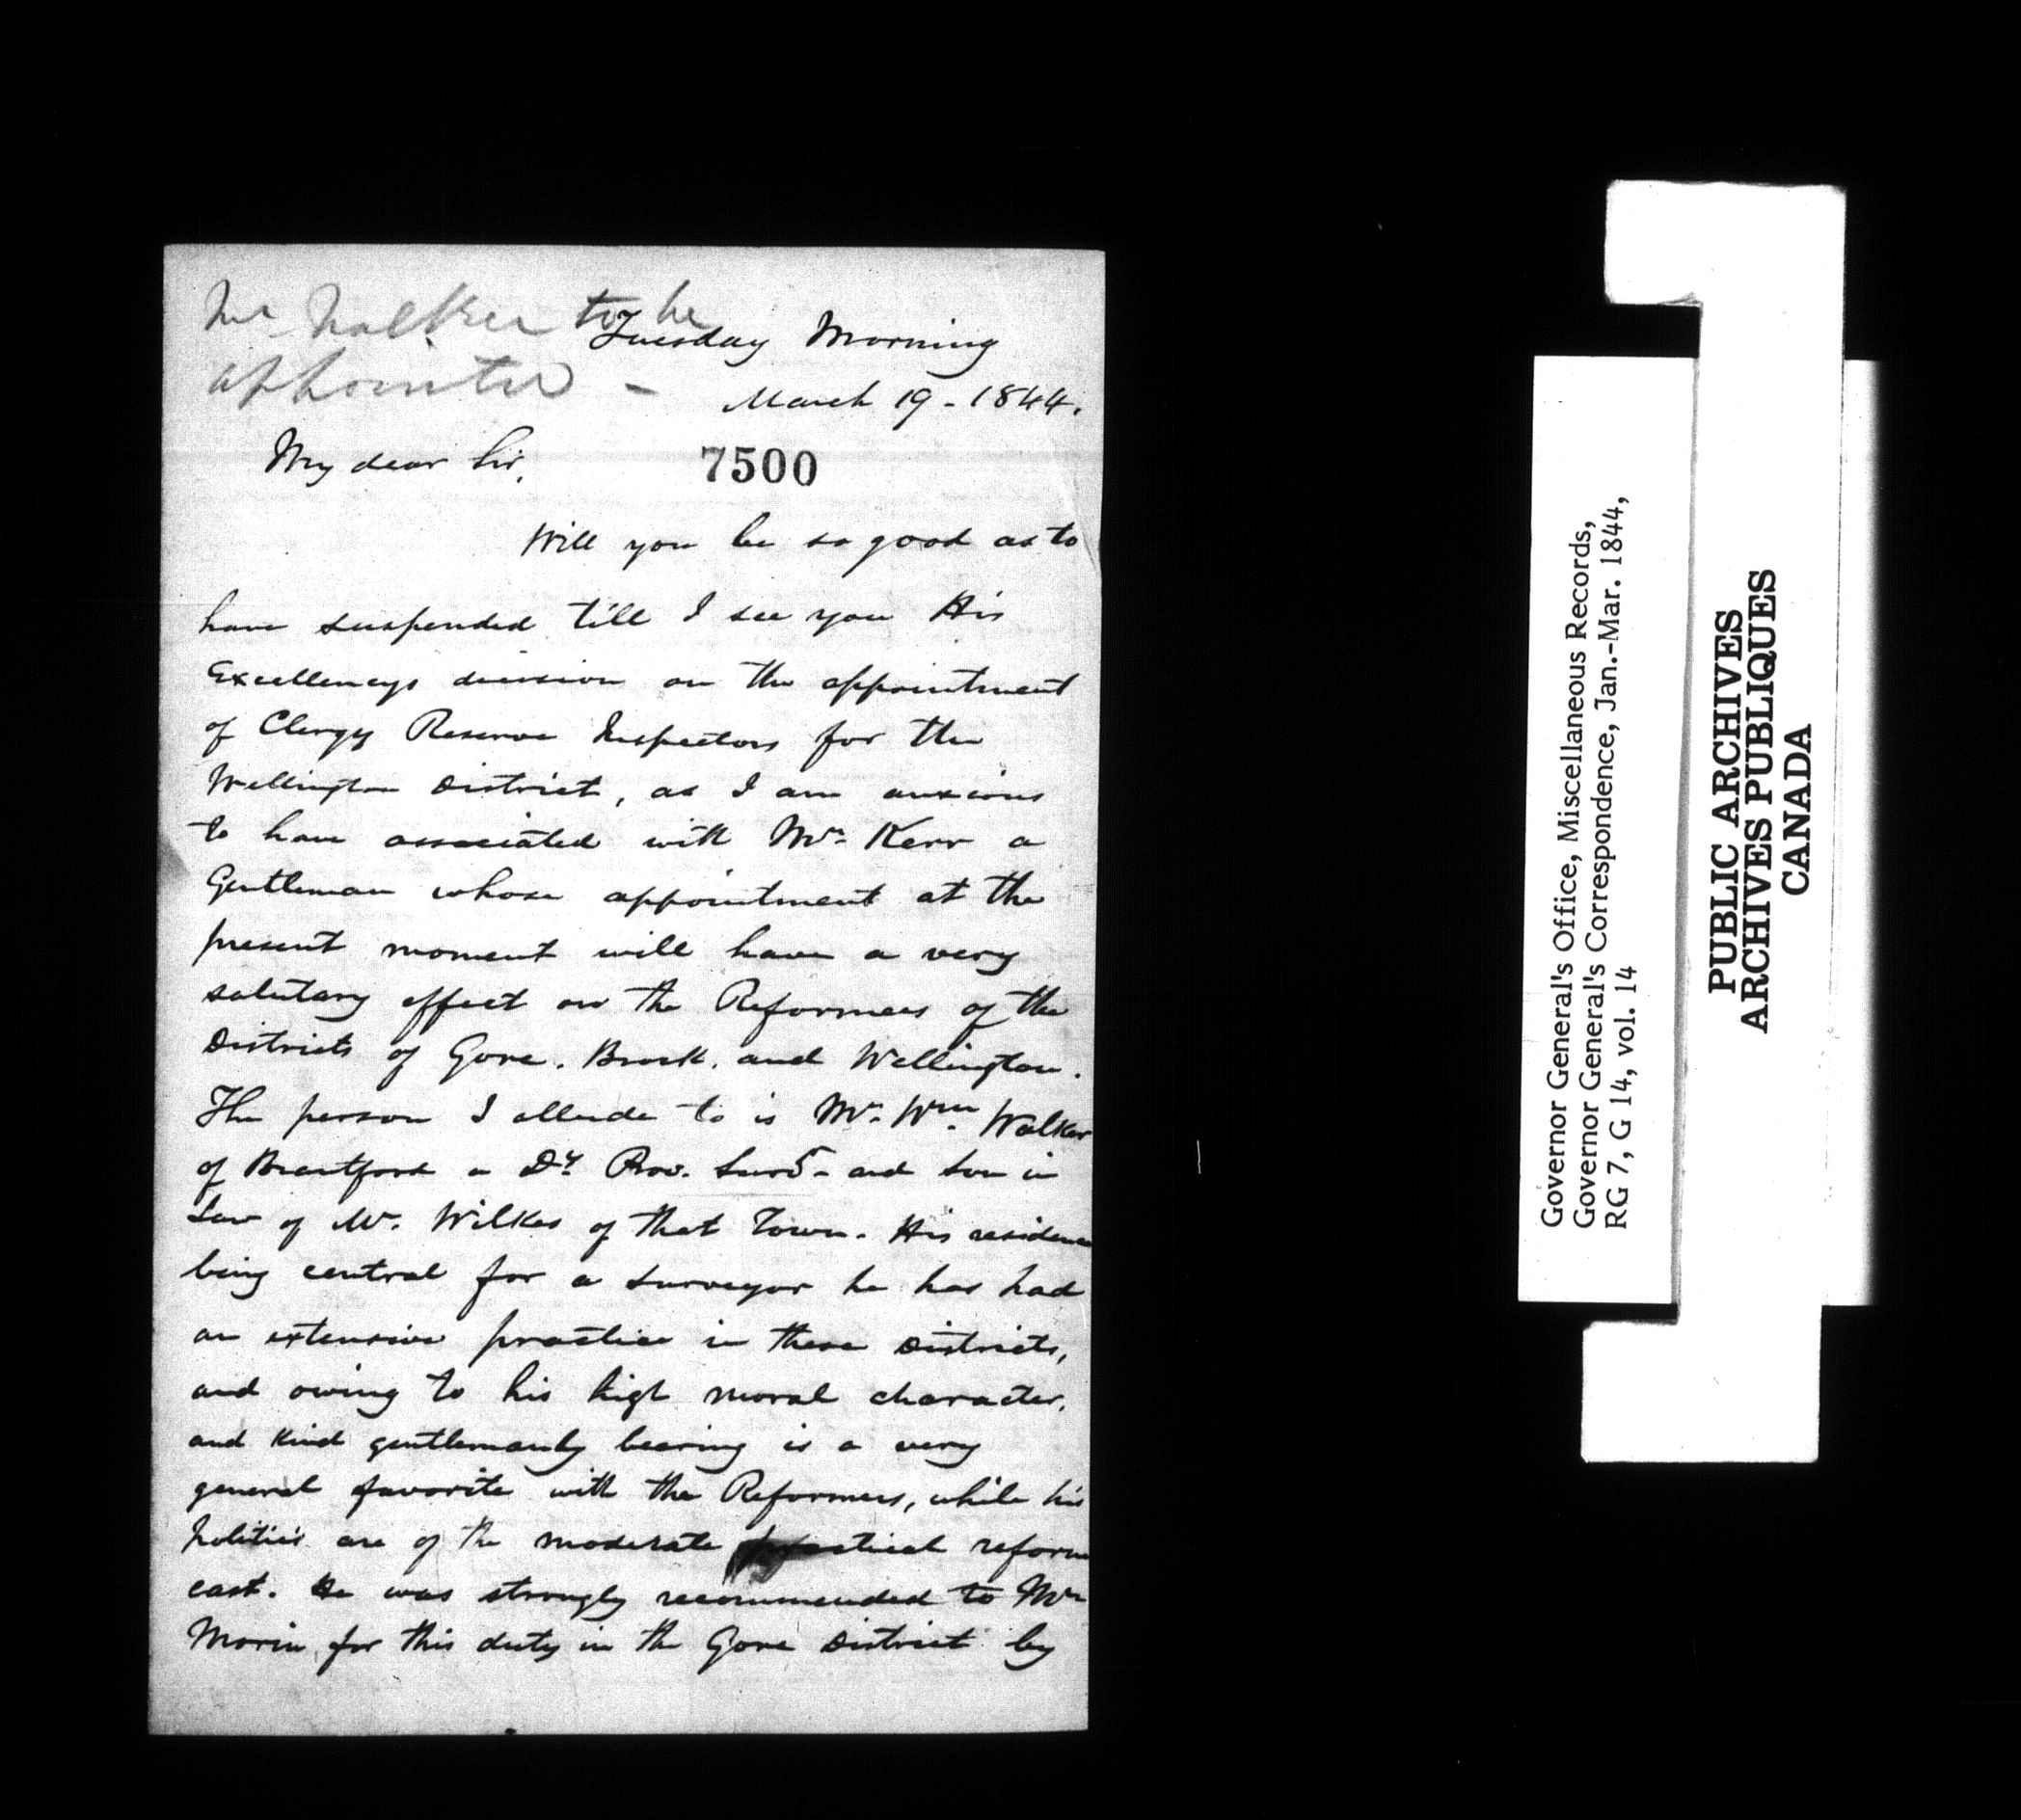 Mr Walker to be
appointed -
Tuesday Morning
March 19 - 1844.
My dear Sir,
7500
Will you be so good as to
have suspended till I see you His
Excellencys decision on the appointment
of Clergy Reserve Inspectors for the
Wellington District, as I am anxious
to have associated with Mr. Kerr a
Gentleman whose appointment at the
present moment will have a very
salutary effect on the Reformers of the
Districts of Gore. Brock. and Wellington.
The person I allude to is Mr. Wm. Walker
of Brantford a Dy. Prov. Survr. and Son in
Law of Mr. Wilkes of that Town. His residence
being central for a Surveyor he has had
an extensive practice in these Districts,
and owing to his high moral character,
and kind gentlemanly bearing is a very
general favorite with the Reformers, while his
politics are of the moderate practical reform
cast. He was strongly recommended to Mr
Morin for this duty in the Gore District by
Governor General's Office, Miscellaneous Records,
Governor General's Correspondence, Jan.-Mar. 1844,
RG 7, G 14, vol. 14
PUBLIC ARCHIVES
ARCHIVES PUBLIQUES
CANADA